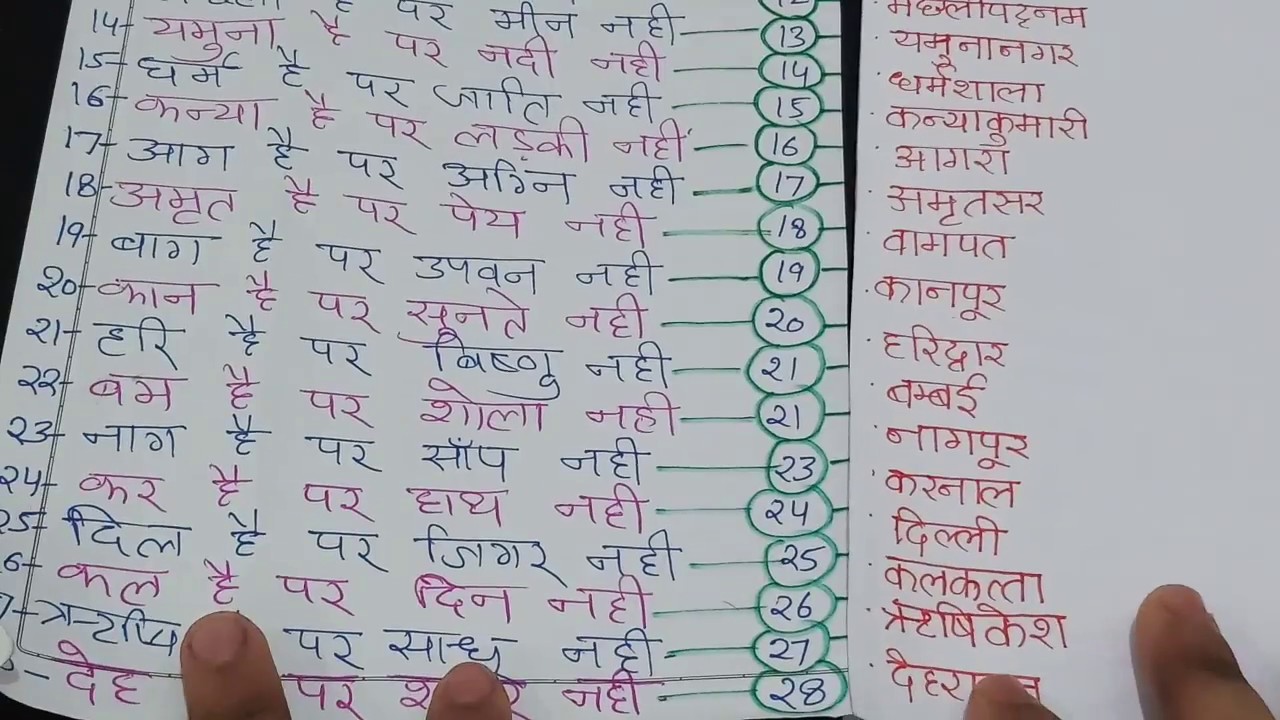 है पर मीन नही 12 मछलीपट्टनम
14 यमुना है पर नदी नही 13 यमूनानगर
15 धर्म है पर जाति नही 14 धर्मशाला
16 कन्या है पर लड़की नहीं 15 कन्याकुमारी
17 आग है पर अग्नि नही 16 आगरा
18 अमृत है पर पेय नही 17 अमृतसर
19 बाग है पर उपवन नही 18 वागपत
20 कान है पर सूनते नही 19 कानपूर
21 हरि है पर बिष्णु नही 20 हरिद्वार
22 बम है पर शोला नही 21 बम्बई
23 नाग है पर साँप नही 21 नागपूर
24 कर है पर हाथ नही 23 करनाल
25 दिल है पर जिगर नही 24 दिल्ली
6 कल है पर दिन नही 25 कलकत्ता
7 ऋषि पर साधु नही 26 ऋषिकेश
देह पर नही 27
28